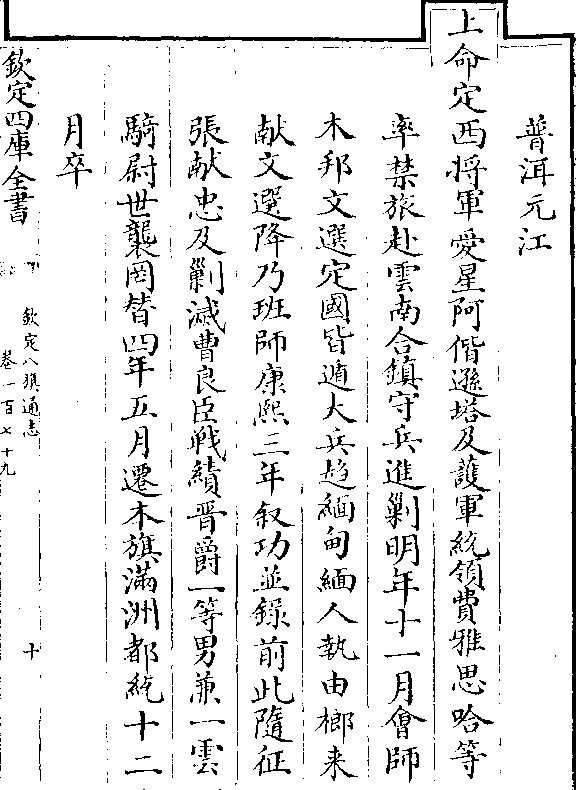 普洱元江
上命定西將軍愛星阿偕遜塔及護軍統領費雅思哈等
率禁旅赴雲南合鎮守兵進剿明年十一月會師
木邦文選定國皆遁大兵趨緬甸緬人執由榔来
献文選降乃班師康熙三年叙功並錄前此隨征
張献忠及剿滅曹良臣戰績晋爵一等男兼一雲
騎尉世襲罔替四年五月遷本旗滿洲都統十二
月卒
欽定四庫全書
欽定八旗通志
卷一百七十九
十